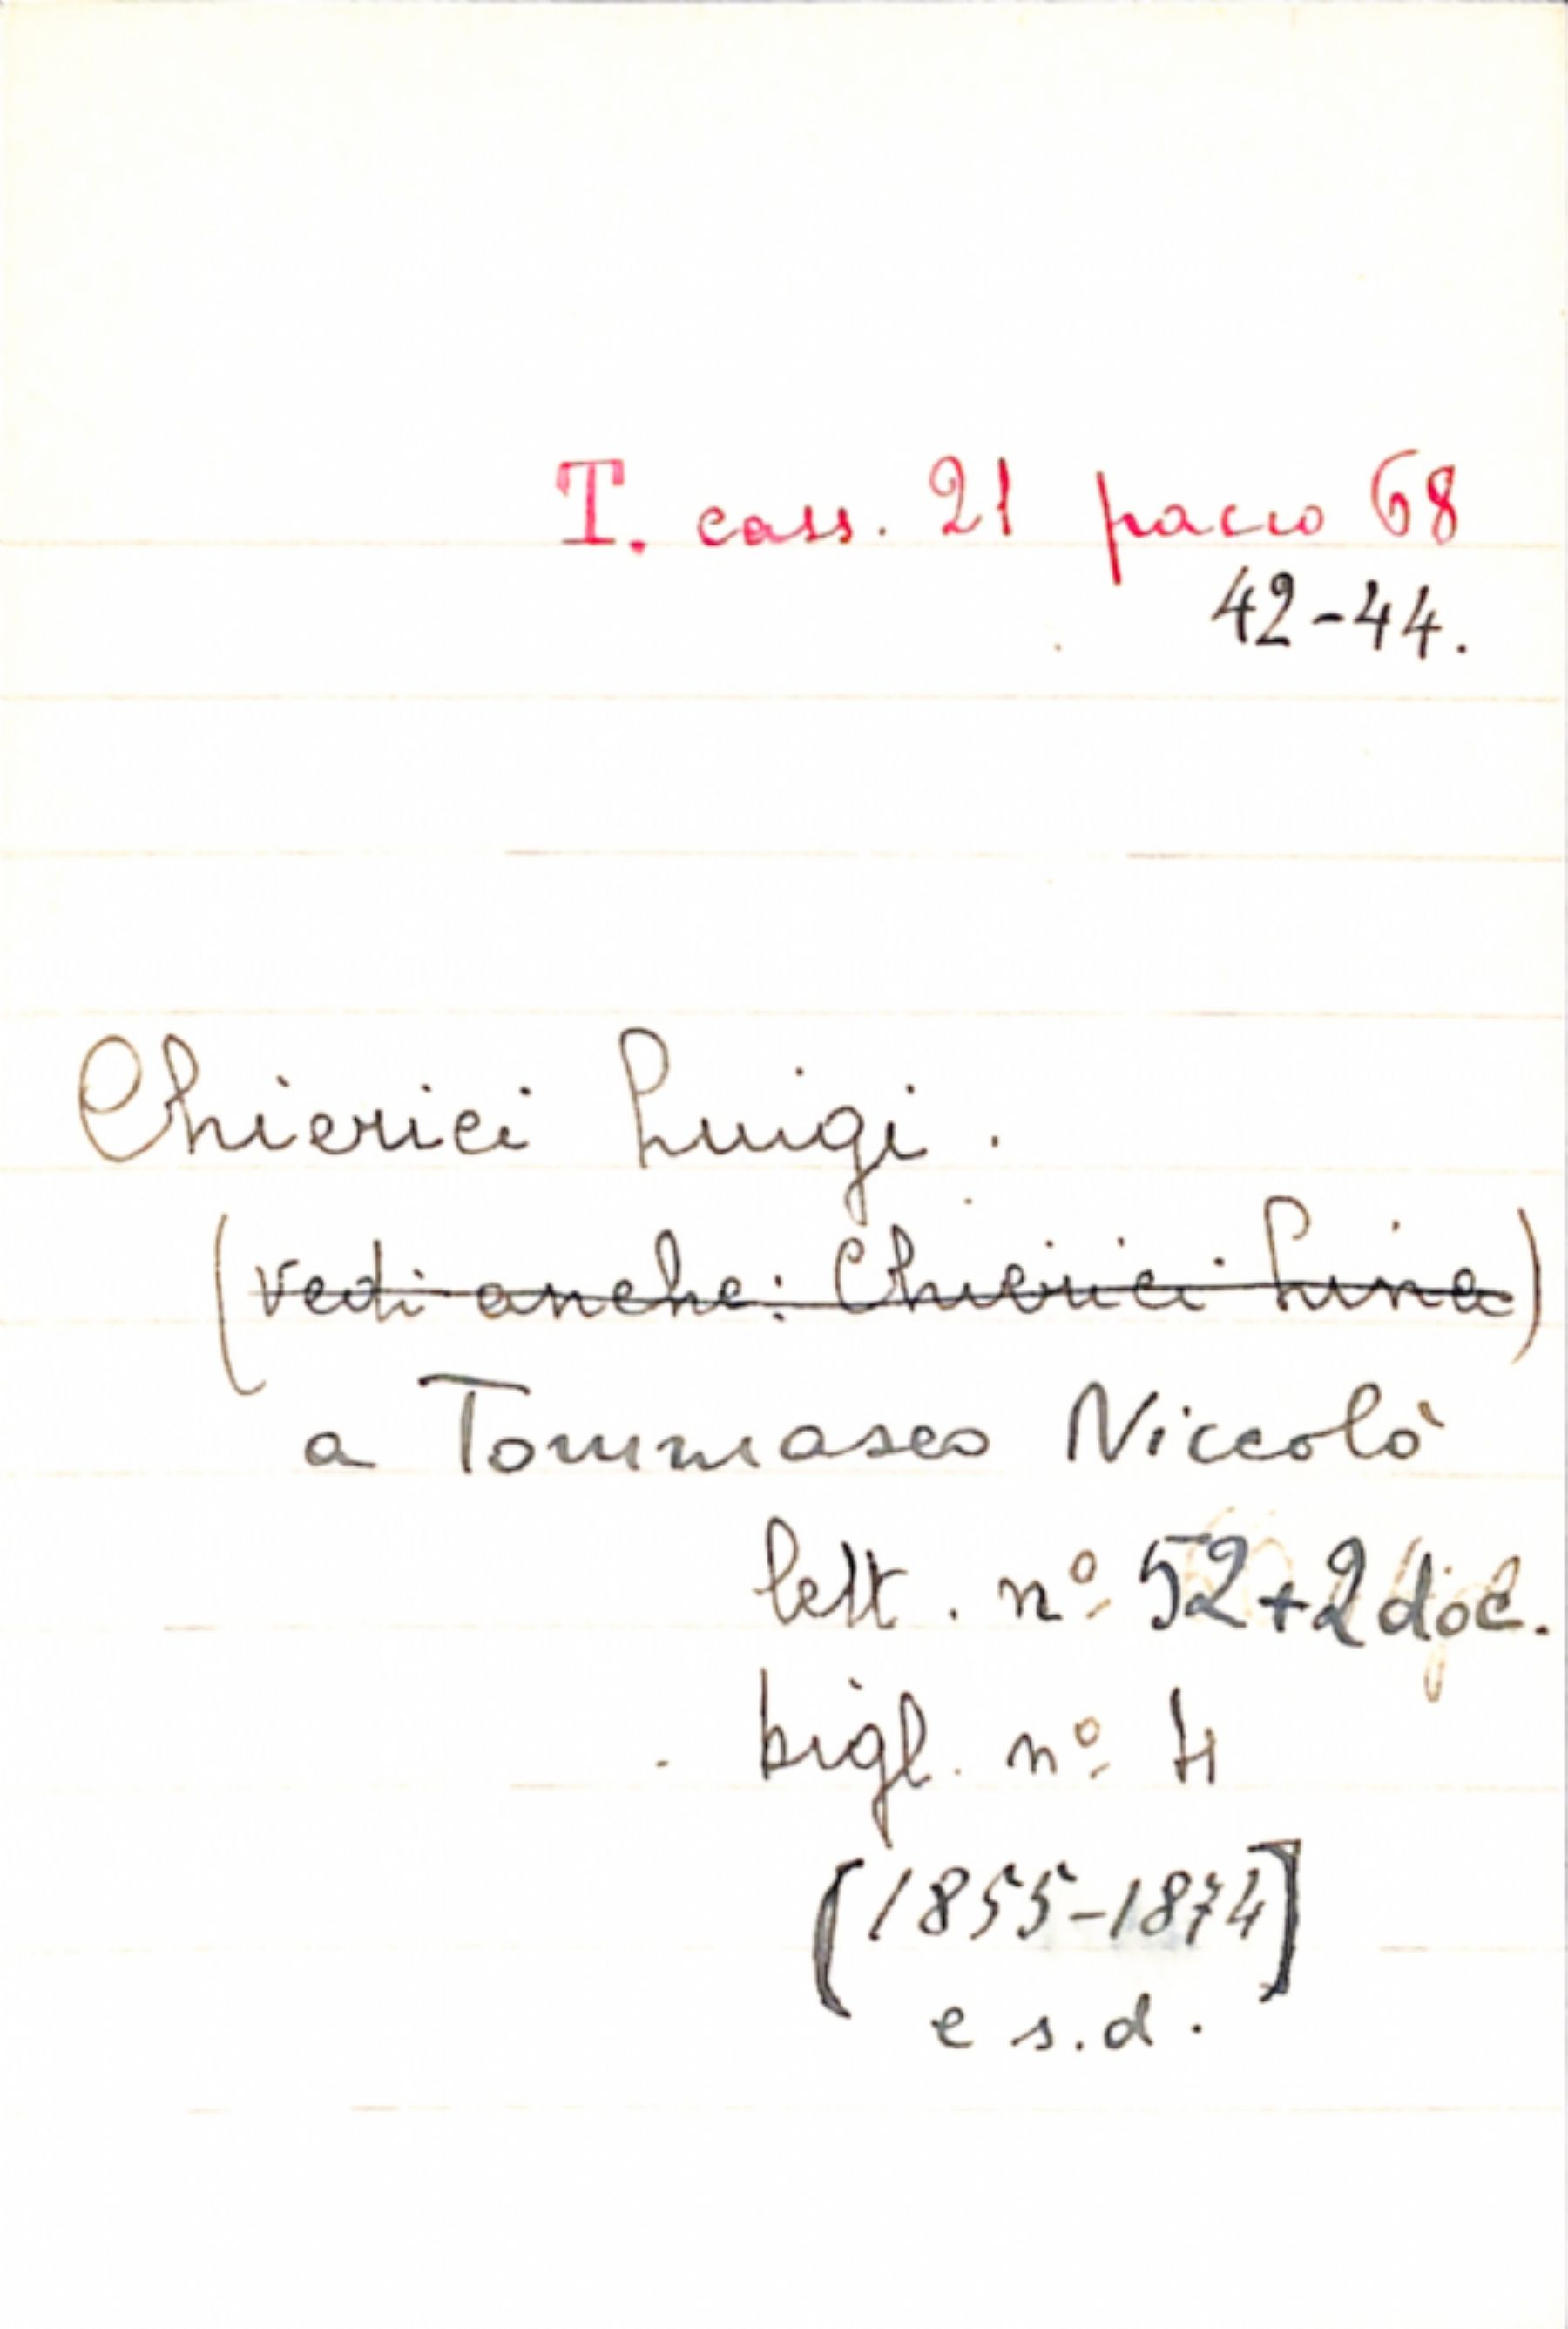 T. cass. 21 pacco 68
42-44.
Chierici Luigi.
(vedi anche: Chierici Lina)
a Tommaseo Niccolò
lett. nº 52+2 doc.
bigl. nº 4
[1855-1874]
e s.d.